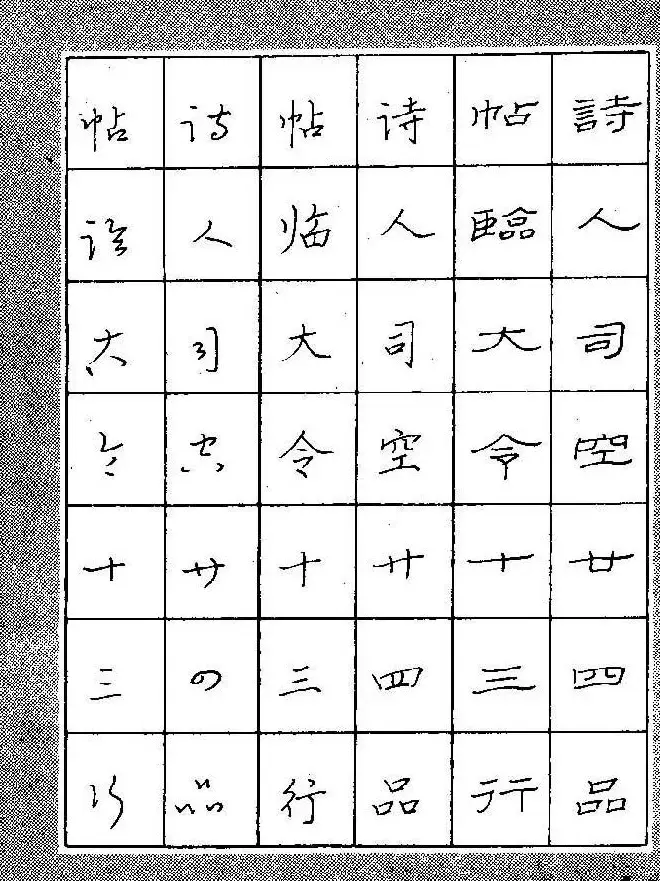 詩人司空廿四品
帖臨大令十三行
诗人司空廿四品
帖临大令十三行
诗人司空廿四品
帖临大令十三行